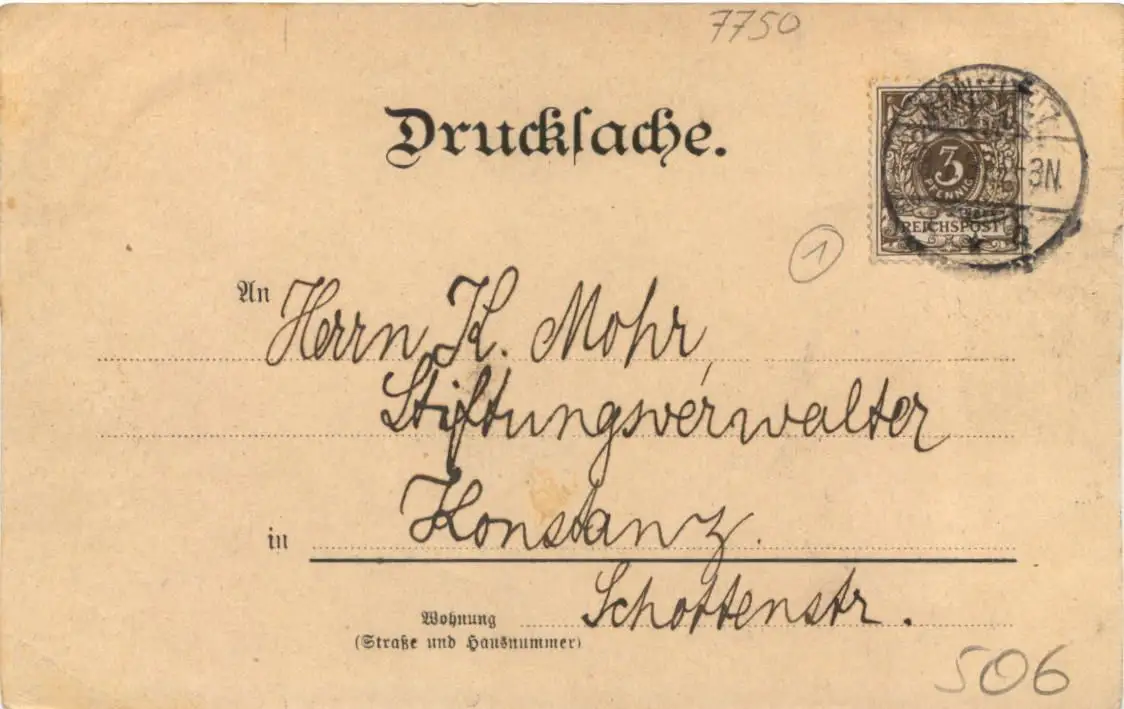 7750
Drucksache.
3
PFENNIG
REICHSPOST
2-3N.
1
An Herrn K. Mohr,
Stiftungsverwalter
in Konstanz.
Wohnung Schottenstr.
(Straße und Hausnummer)
506